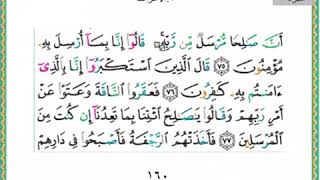 أَنَّ صَٰلِحًا مُّرْسَلٌ مِّن رَّبِّهِۦ ۚ قَالُوٓا۟ إِنَّا بِمَآ أُرْسِلَ بِهِۦ
مُؤْمِنُونَ ﴿٧٥﴾ قَالَ ٱلَّذِينَ ٱسْتَكْبَرُوٓا۟ إِنَّا بِٱلَّذِىٓ
ءَامَنتُم بِهِۦ كَٰفِرُونَ ﴿٧٦﴾ فَعَقَرُوا۟ ٱلنَّاقَةَ وَعَتَوْا۟ عَنْ
أَمْرِ رَبِّهِمْ وَقَالُوا۟ يَٰصَٰلِحُ ٱئْتِنَا بِمَا تَعِدُنَآ إِن كُنتَ مِنَ
ٱلْمُرْسَلِينَ ﴿٧٧﴾ فَأَخَذَتْهُمُ ٱلرَّجْفَةُ فَأَصْبَحُوا۟ فِى دَارِهِمْ
١٦٠